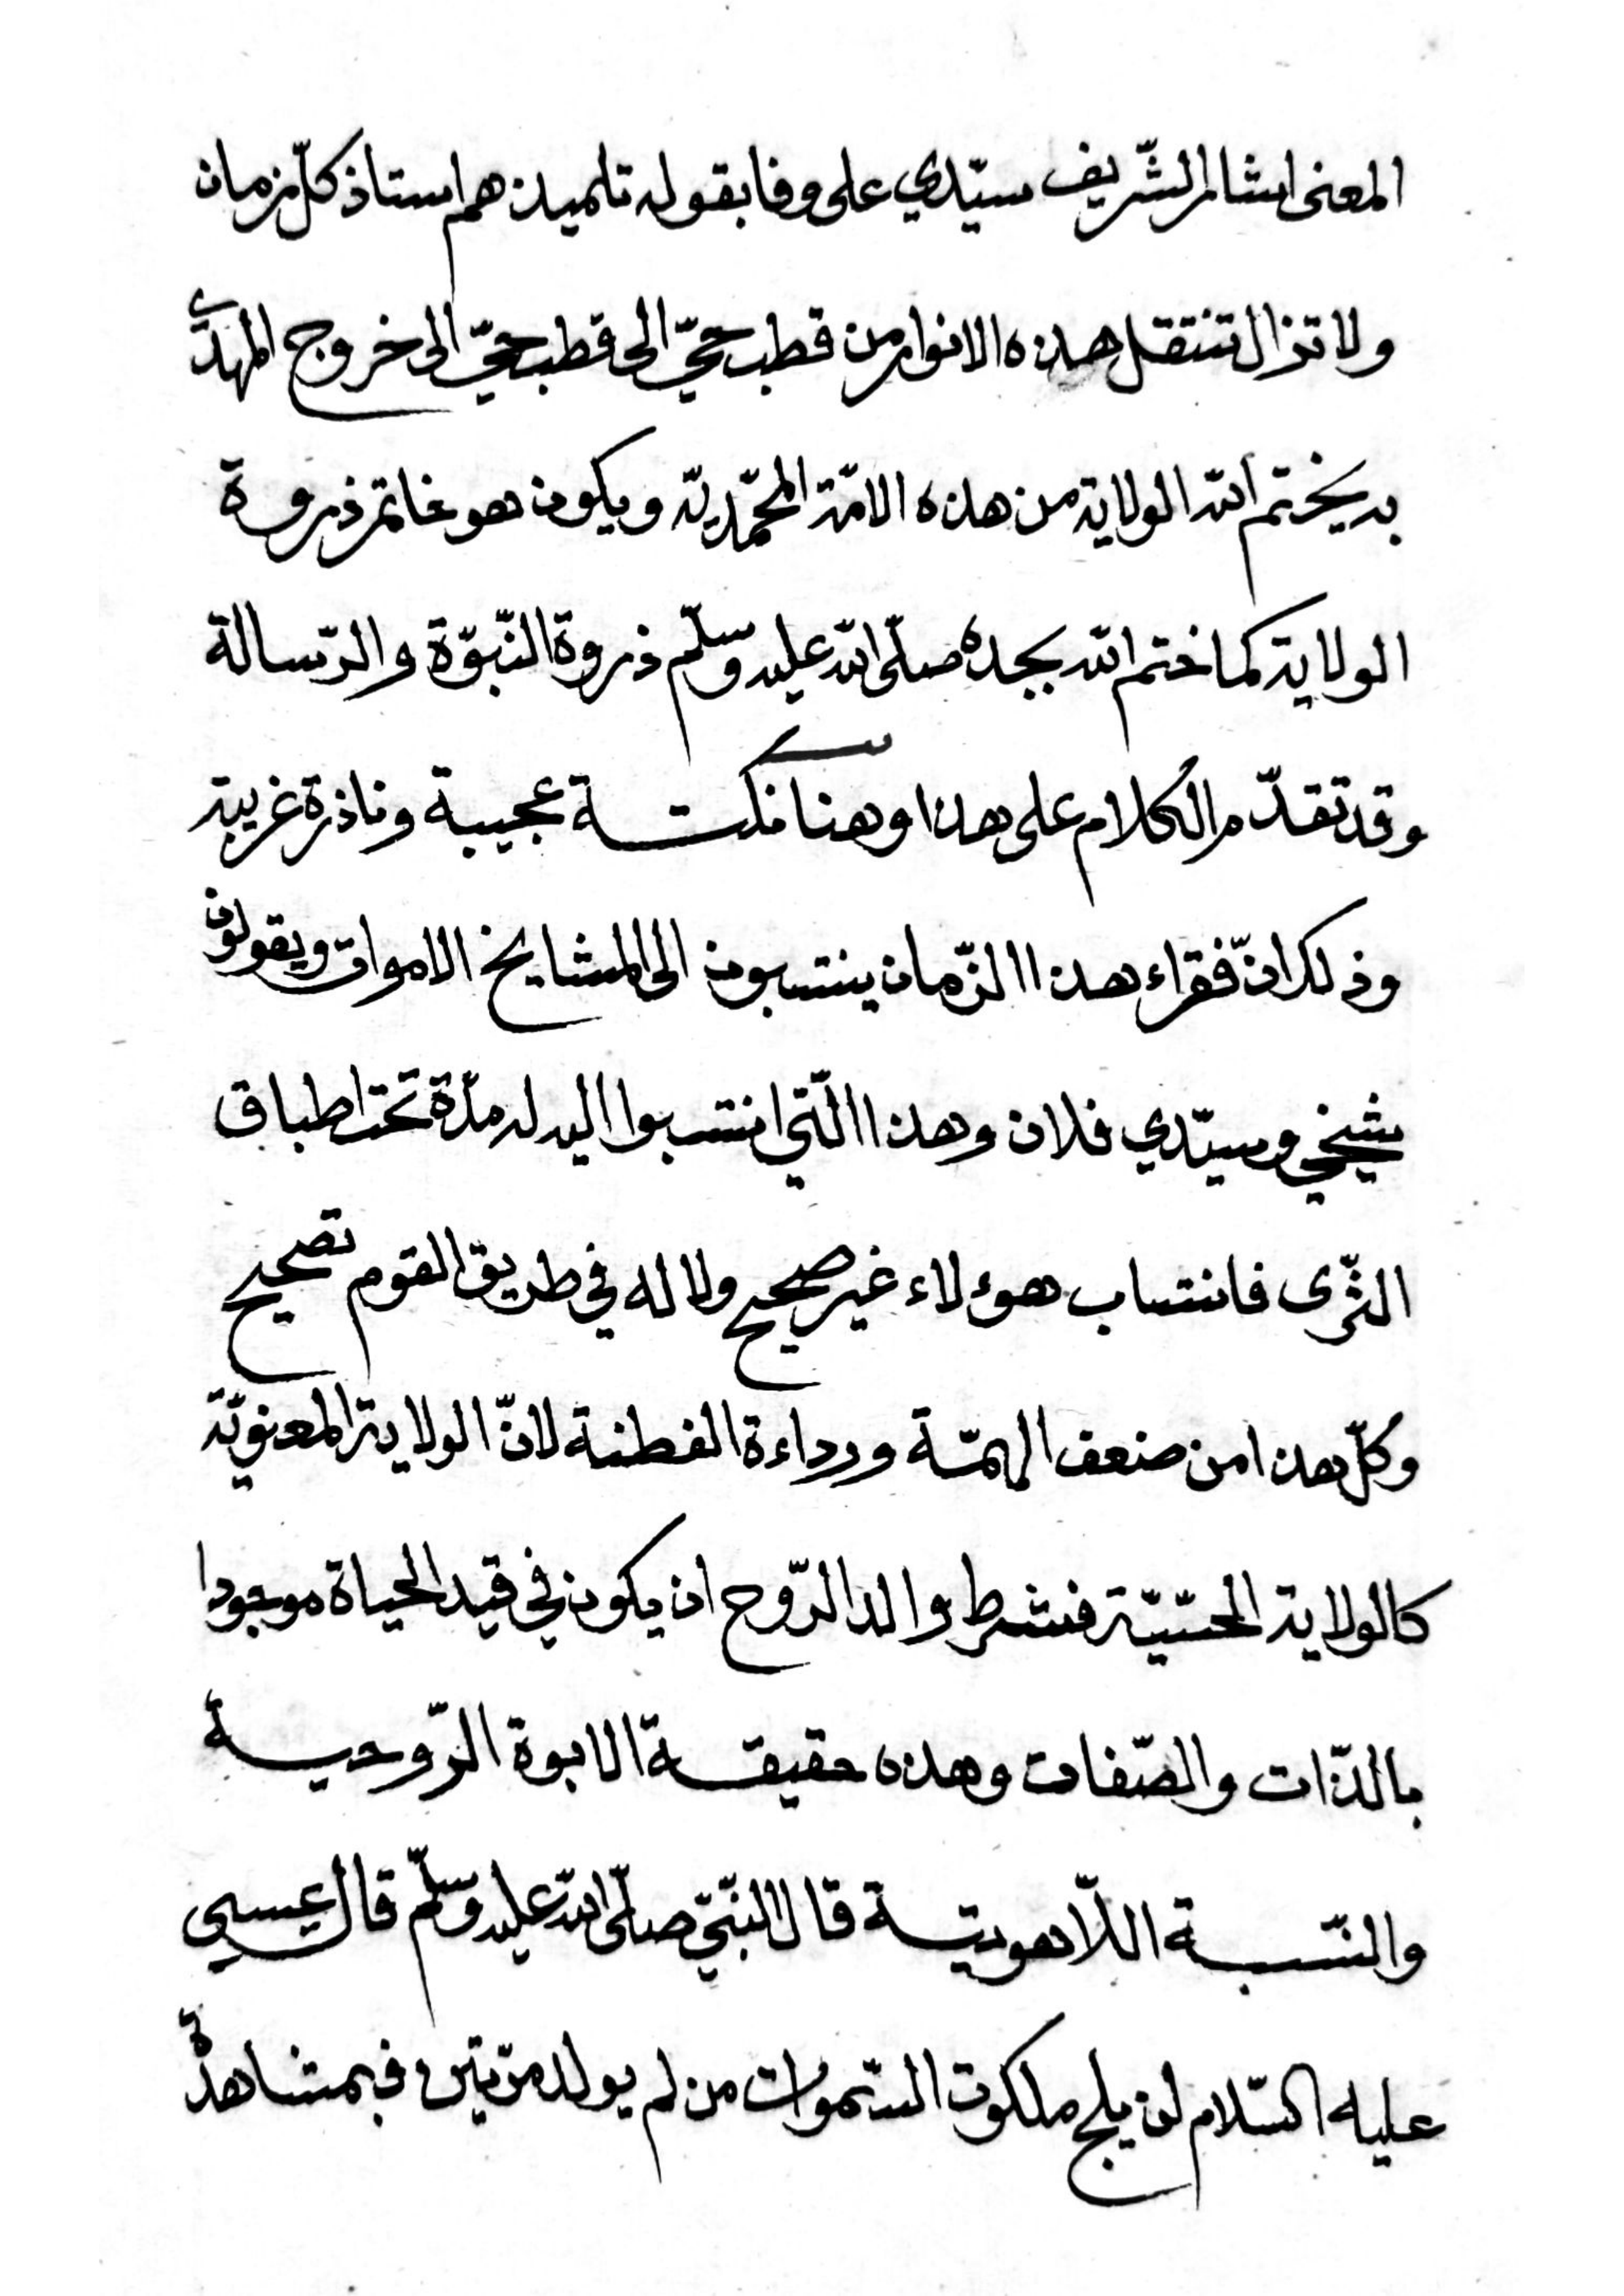 المعنى اشار الشّريف سيّدي على وفا بقوله تلميذهم استاذ كلّ زمان
ولا تزال تنتقل هذه الانوار من قطب حيّ الى قطب حيّ الى خروج المهديّ
به يختم الله الولاية من هذه الامّة المحمّديّة ويكون هو خاتم ذروة
الولاية كما ختم الله بجده صلّى الله عليه وسلّم ذروة النّبوّة والرّسالة
وقد تقدّم الكلام على هذا وهنا نكتة عجيبة وناذرة غريبة
وذلك انّ فقراء هذا الزّمان ينتسبون الى المشايخ الاموات ويقولون
شيخي وسيّدي فلان وهذا الّتي انتسبوا اليه له مدّة تحت اطباق
الثّرى فانتساب هوءلاء غير صحيح ولا له في طريق القوم تصحيح
وكلّ هذا من ضعف الهمّة ورداءة الفطنة لانّ الولاية المعنويّة
كالولاية الحسّيّة فشرط والد الرّوح ان يكون في قيد الحياة موجودا
بالذّات والصّفات وهذه حقيقة الابوة الرّوحية
والنّسبة اللّاهوتية قال النّبيّ صلّى الله عليه وسلّم قال عيسى
عليه السّلام لن يلج ملكوت السّموات من لم يولد مرّتين فبمشاهدة